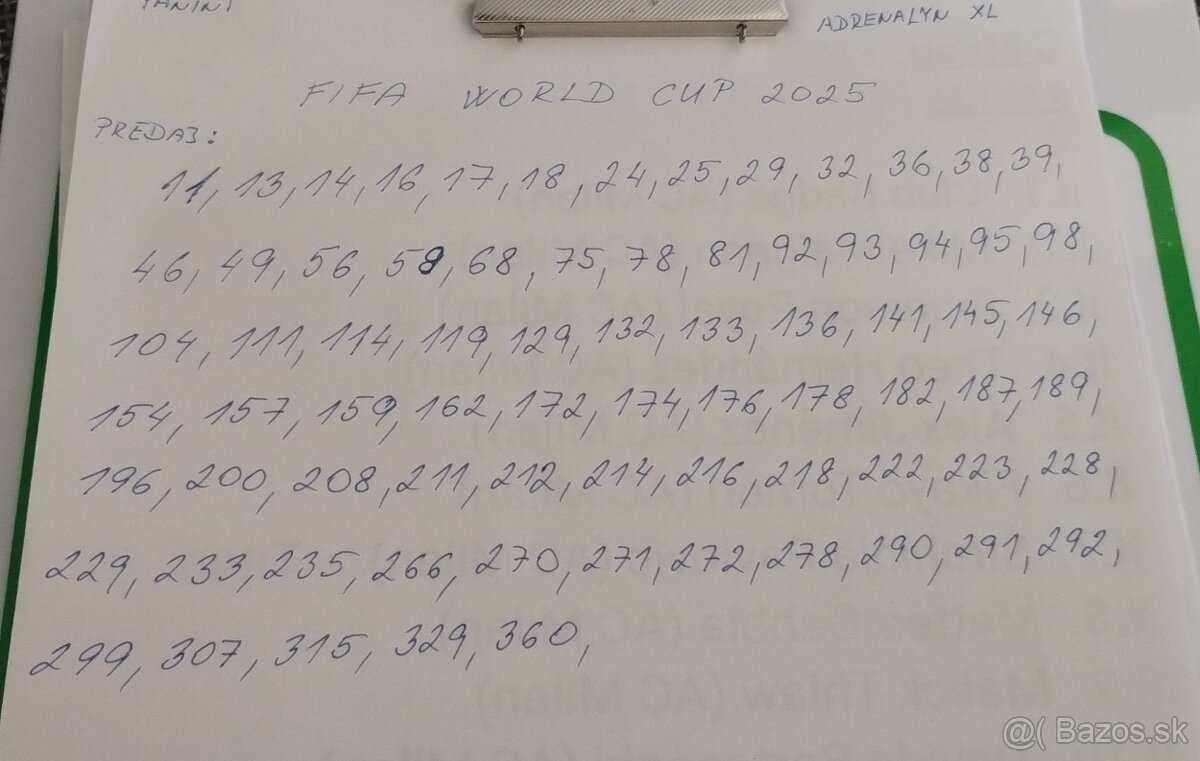 PANINI
ADRENALYN XL
FIFA WORLD CUP 2025
PREDAJ:
11, 13, 14, 16, 17, 18, 24, 25, 29, 32, 36, 38, 39,
46, 49, 56, 59, 68, 75, 78, 81, 92, 93, 94, 95, 98,
104, 111, 114, 119, 129, 132, 133, 136, 141, 145, 146,
154, 157, 159, 162, 172, 174, 176, 178, 182, 187, 189,
196, 200, 208, 211, 212, 214, 216, 218, 222, 223, 228,
229, 233, 235, 266, 270, 271, 272, 278, 290, 291, 292,
299, 307, 315, 329, 360,
@( Bazos.sk